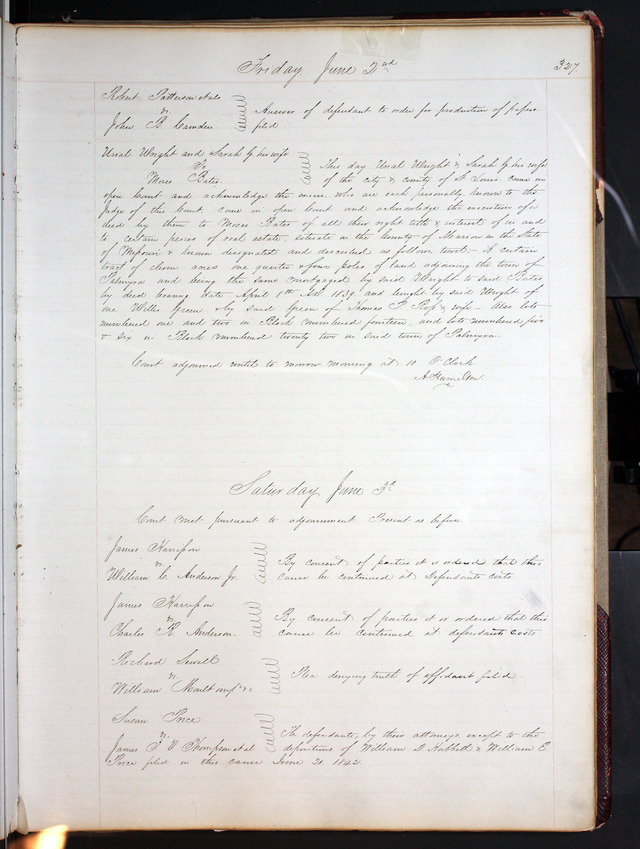 Friday June 2nd
327.
Robert Patterson et als
vs
John B. Camden
Answer of defendant to order for production of papers
filed
Urial Wright and Sarah G his wife
To
Moses Bates
This day Urial Wright & Sarah G his wife
of the city & county of St Louis come in
open Court and acknowledge the same who are each personally known to the
Judge of this Court, come in open Court and acknowledge the execution of a
deed by them to Moses Bates of all their right title & interest of in and
to certain pieces of real estate, situate in the County of Marion in the State
of Missouri & known designated and described as follows towit, - A certain
tract of eleven acres one quarter & four poles of land adjoining the town of
Palmyra and being the same mortgaged by said Wright to said Bates
by deed bearing date April 8th AD. 1839 and bought by said Wright of
one Willis Green & by said Green of Thomas P Ross & wife - Also lots
numbered one and two in Block numbered fourteen, and lots numbered five
& six in Block numbered twenty two in said town of Palmyra.
Court adjourned until to morrow morning at 10 O'Clock
A Hamilton.
Saturday June 3d
Court met pursuant to adjournment Present as before.
James Harrison
vs
William C. Anderson Jr.
By consent of parties it is ordered that this
cause be continued at Defendants costs.
James Harrison
vs
Charles R Anderson.
By consent of parties it is ordered that this
cause be continued at defendants costs
Richard Sewell
vs
William
Plea denying truth of affidavit filed
Susan Price
vs
James T V Thompson et al
The defendants, by their attorneys except to the
depositions of William D Hubbell & William E
Price filed in this cause June 21 1842.